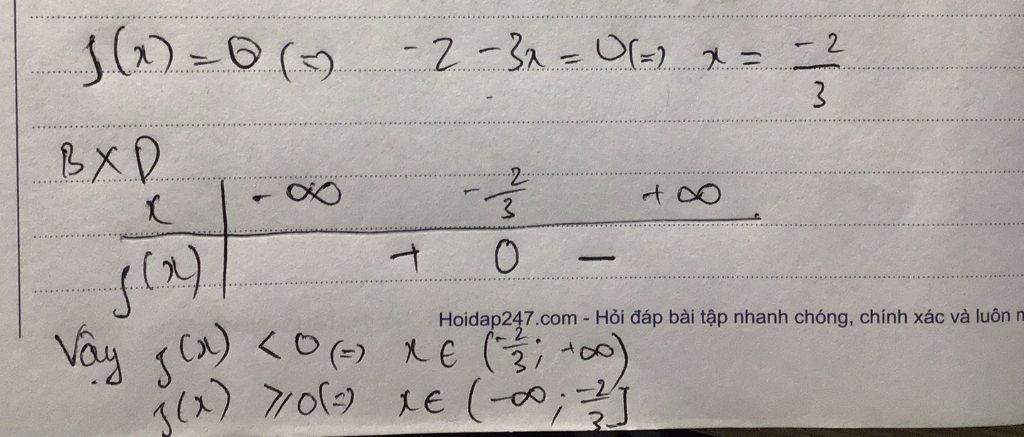 f(x) = 0 (=) -2 - 3x = 0 (=) x = -2/3
BXD
x | -∞ -2/3 +∞
f(x) | + 0 -
Hoidap247.com - Hỏi đáp bài tập nhanh chóng, chính xác và luôn
Vậy f(x) < 0 (=) x ∈ (-2/3; +∞)
f(x) ⩾ 0 (=) x ∈ (-∞; -2/3]